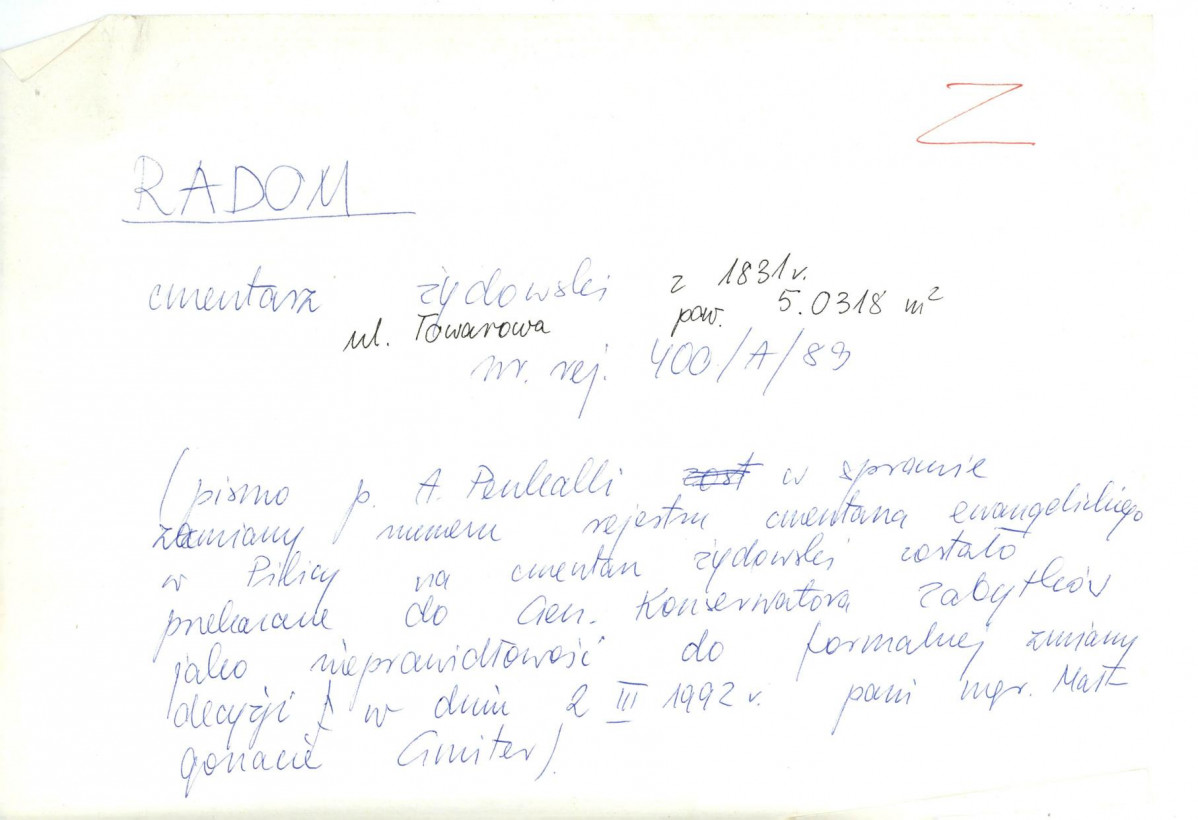 Z
RADOM
cmentarz żydowski z 1831 r.
ul. Towarowa pow. 5.0318 m²
nr. rej. 400/A/89
(pismo p. A. Penkalli zost w sprawie
zamiany numeru rejestru cmentarza ewangelickiego
w Pilicy na cmentarz żydowski zostało
przekazane do Gen. Konserwatora Zabytków
jako nieprawidłowość do formalnej zmiany
decyzji w dniu 2 III 1992 r. pani mgr. Mał-
gorzacie Gmiter).